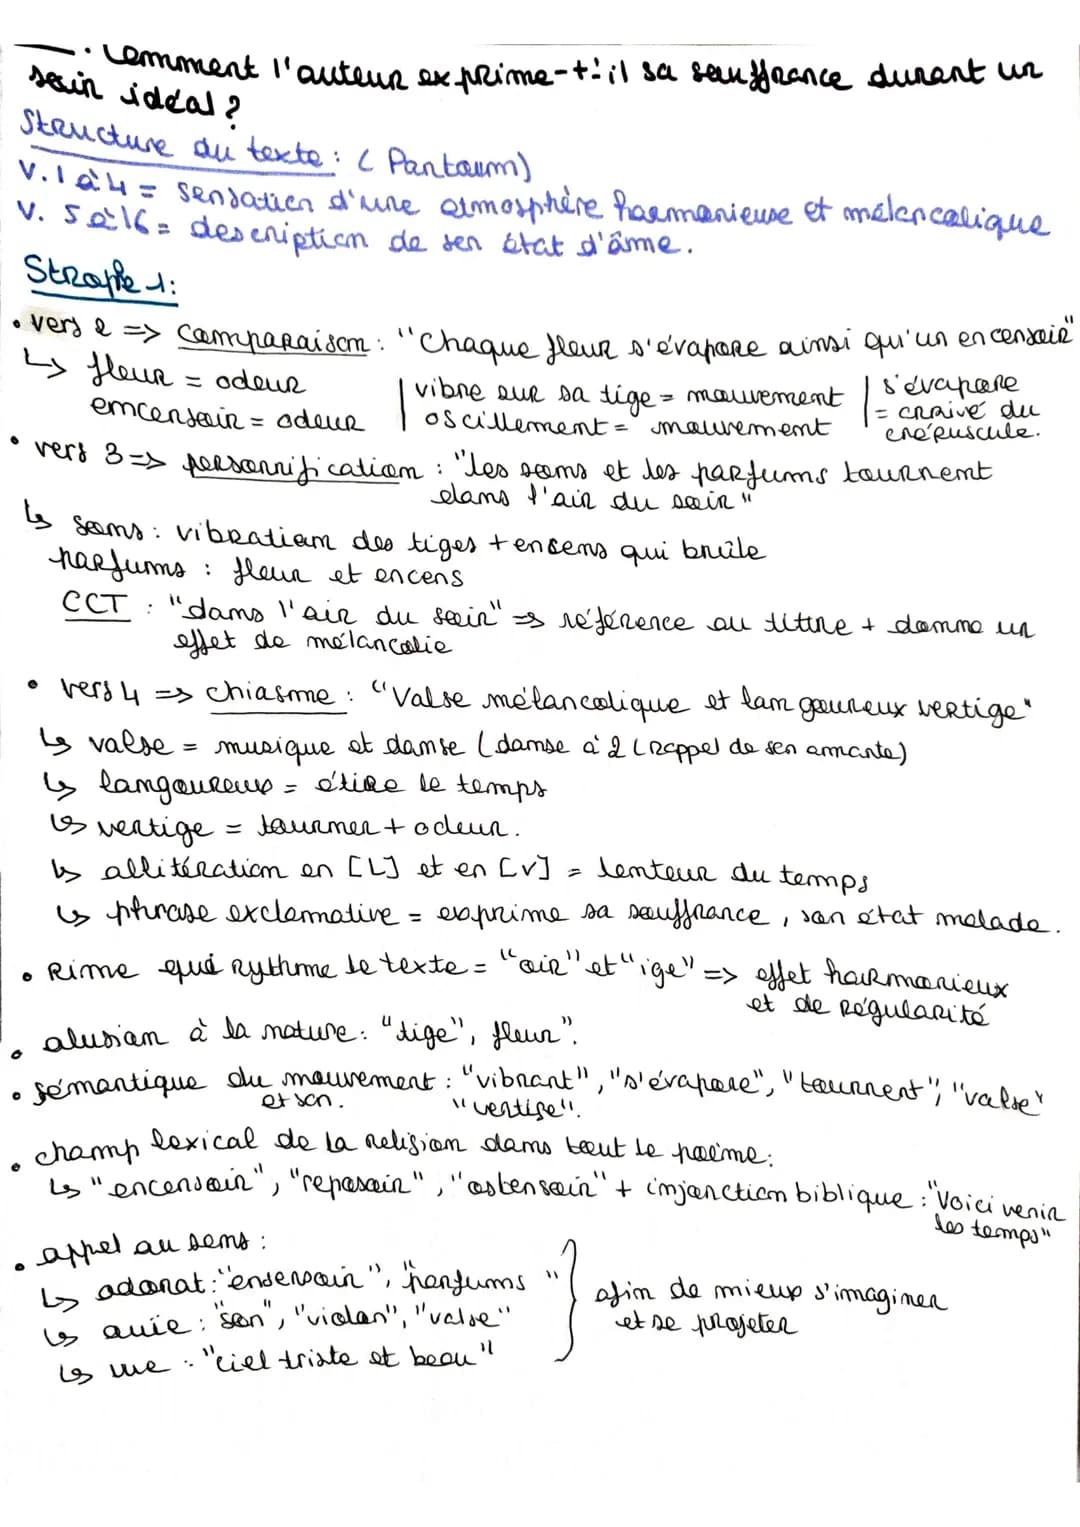 . Comment l'auteur exprime-t-il sa souffrance durant un
soir idéal ?
Structure du texte : ( Pantoum)
V. 1 à 4 = sensation d'une atmosphère harmonieuse et mélancolique
V. 5 à 16 = description de son état d'âme.
Strophe 1:
• vers 2 => comparaison : "Chaque fleur s'évapore ainsi qu'un encensoir"
↳ fleur = odeur | vibre sur sa tige = mouvement | s'évapore
encensoir = odeur | oscillement = mouvement | = arrivé du
crépuscule.
• vers 3 => personnification : "les sons et les parfums tournent
dans l'air du soir"
↳ sons : vibration des tiges + encens qui brûle
parfums : fleur et encens
CCT : "dans l'air du soir" => référence au titre + donne un
effet de mélancolie
• vers 4 => chiasme : "Valse mélancolique et langoureux vertige"
↳ valse = musique et danse (danse à 2 (rappel de son amante)
↳ langoureux = étire le temps
↳ vertige = tourner + odeur.
↳ allitération en [L] et en [v] = lenteur du temps
↳ phrase exclamative = exprime sa souffrance, son état malade.
• Rime qui rythme le texte = "oir" et "ige" => effet harmonieux
et de régularité
• alusion à la nature : "tige", fleur".
• sémantique du mouvement : "vibrant", "s'évapore", "tournent", "valse"
et son. "vertige".
• champ lexical de la religion dans tout le poème:
↳ "encensoir", "reposoir", "ostensoir" + injonction biblique : "Voici venir
les temps"
• appel au sens :
↳ odorat : "ensensoir", "parfums" } afin de mieux s'imaginer
↳ ouïe : "son", "violon", "valse" et se projeter
↳ vue : "ciel triste et beau"